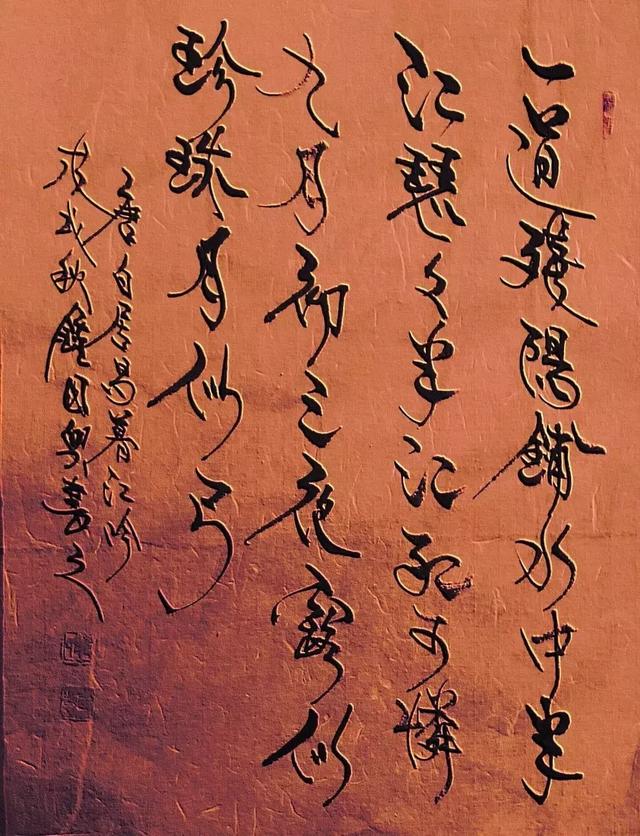 一道殘陽鋪水中半
江瑟々半江紅可憐
九月初三夜露似
珍珠月似弓
唐白居易暮江吟
戊戌秋書之